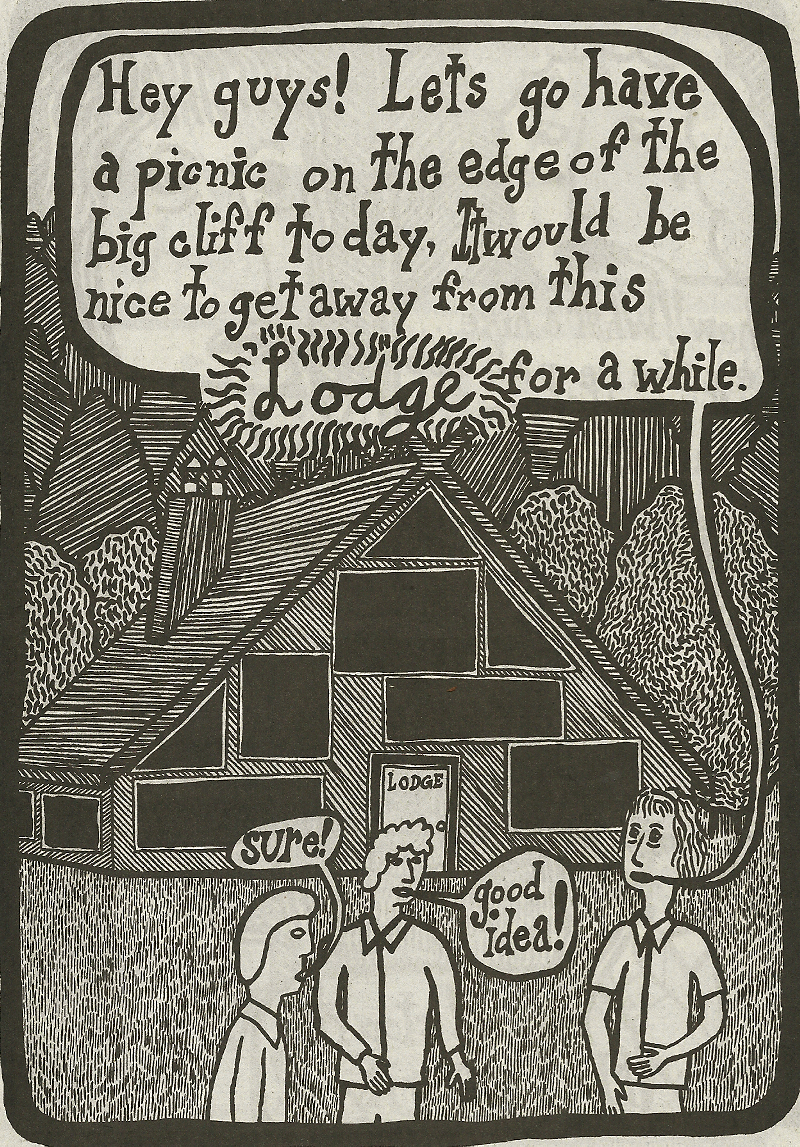 Hey guys! Lets go have
a picnic on the edge of the
big cliff today, It would be
nice to get away from this
Lodge for a while.
LODGE
sure!
good
idea!